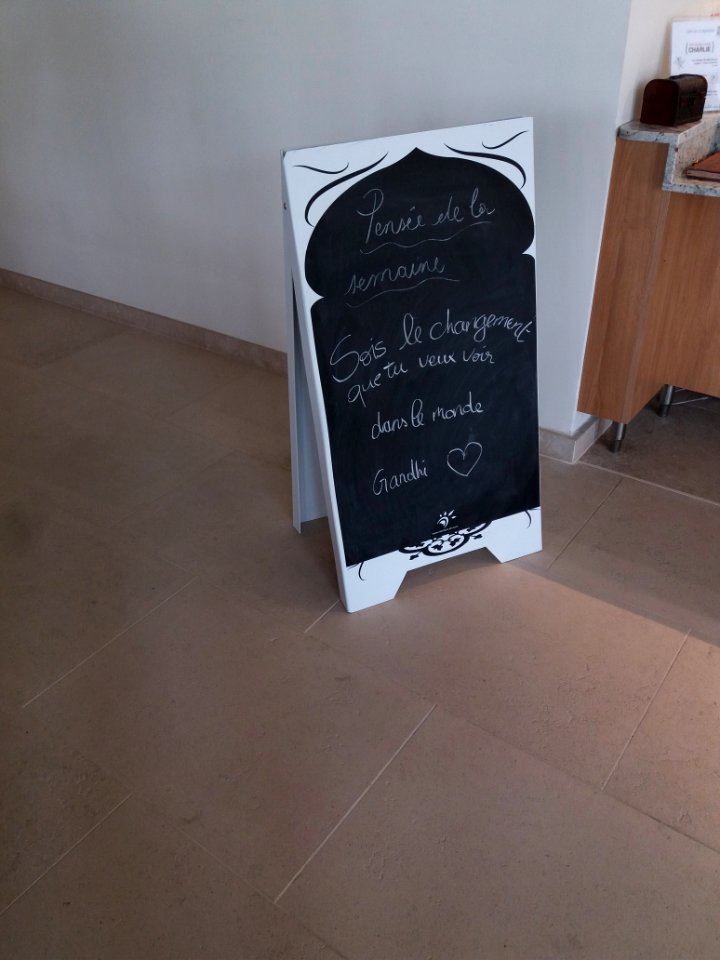 CHARLIE
Pensée de la
semaine
Sois le changement
que tu veux voir
dans le monde
Gandhi